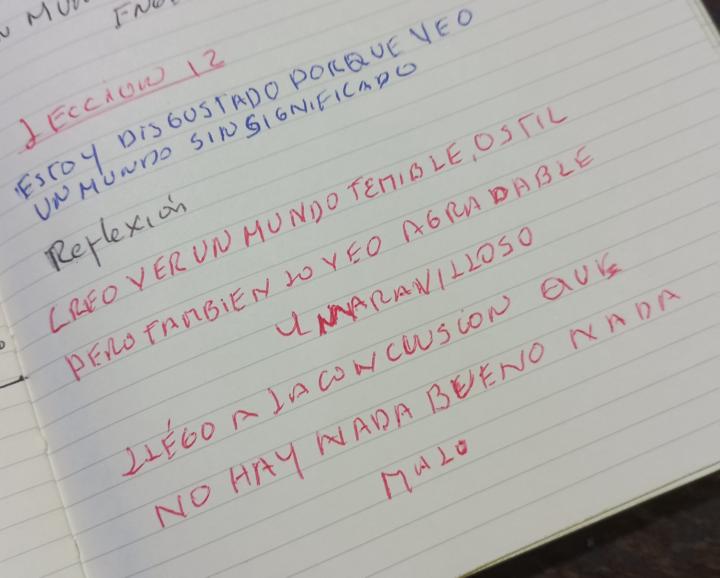 N MUN
ENO
LECCION 12
ESTOY DISGUSTADO PORQUE VEO
UN MUNDO SIN SIGNIFICADO
Reflexión
CREO VER UN MUNDO TEMIBLE, OSTIL
PERO TAMBIEN LO VEO AGRADABLE
Y MARAVILLOSO
LLÉGO A LA CONCLUSIÓN QUE
NO HAY NADA BUENO NADA
MALO